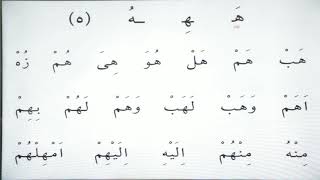 هَ هِ ـهُ (٥)
هَبْ هَمْ هَلْ هُوَ هِىَ هُمْ زُهْ
اَهَمْ وَهَبْ لَهَبْ وَهَمْ لَهُمْ بِهِمْ
مِنْهُ مِنْهُمْ اِلَيْهِ اِلَيْهِمْ اَمْهِلْهُمْ